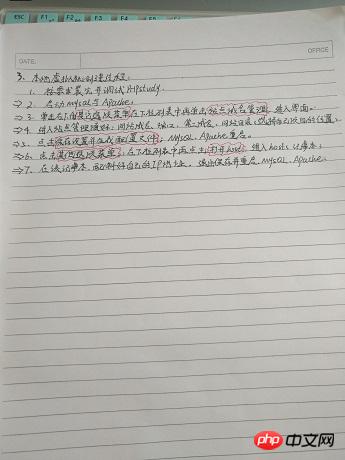 ESC F1 F2 F3 F4
OFFICE
DATE:
3. 本地虚拟机创建过程:
1. 按要求装完并调试Phpstudy.
→ 2. 启动mysql与Apache.
→ 3. 单击右下角其它选项菜单在下拉列表中再单击站点域名管理,进入界面。
→ 4. 进入站点管理填好:网站域名、端口、第二域名、网站目录(选择自己项目的位置)
→ 5. 点击保存设置并生成配置文件,Mysql、Apache重启。
→ 6. 点击其他选项菜单,在下拉列表中再点击打开host,进入hosts记事本,
→ 7. 在该记事本,配制好自己的IP地址,退出保存并重启Mysql、Apache.
php中文网